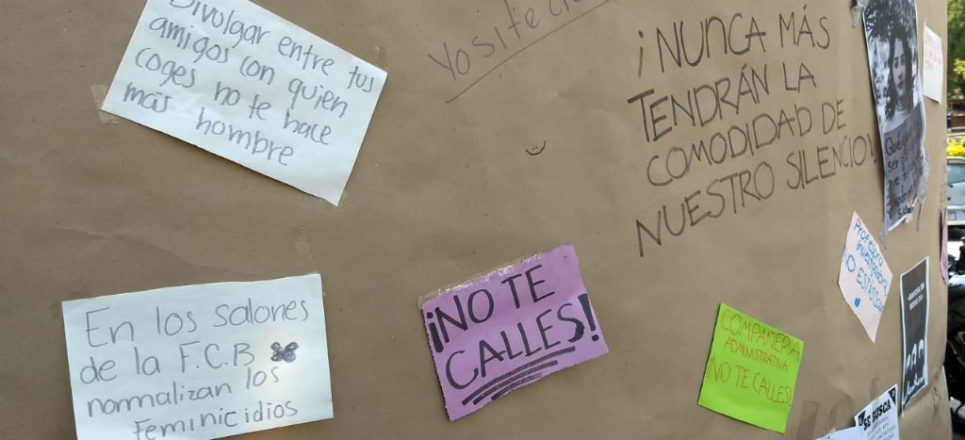 Divulgar entre tus
amigos con quien
coges no te hace
más hombre
Yo si te
¡NUNCA MÁS
TENDRÁN LA
COMODIDAD DE
NUESTRO SILENCIO!
En los salones
de la F.C.B
normalizan los
Feminicidios
¡NO TE
CALLES!
COMPAÑERA
ADMINISTRATIVA
NO TE CALLES
Profesora
investigadora
NO ESTÁS
SE BUSCA